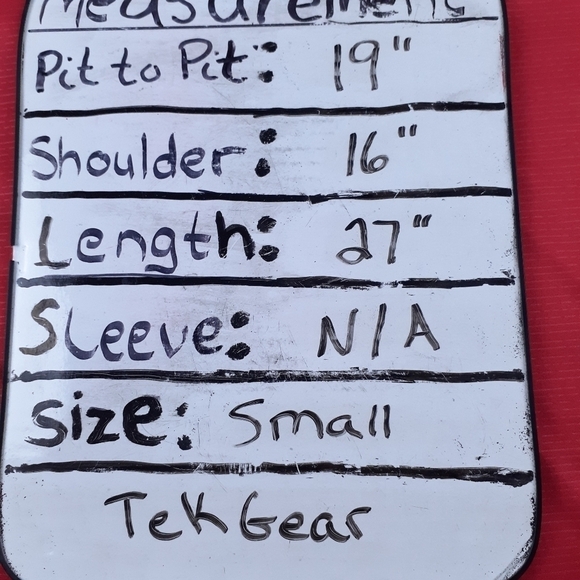 Measurement
Pit to Pit: 19"
Shoulder: 16"
Length: 27"
Sleeve: N/A
Size: Small
TekGear